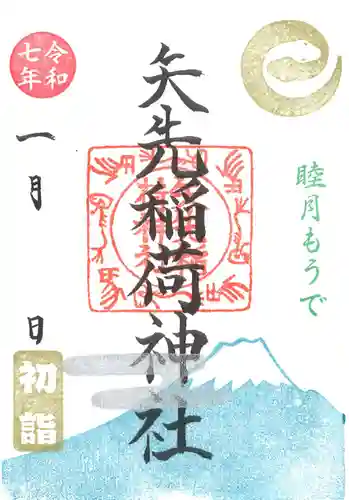 令和
七年
睦月もうで
矢先稲荷神社
一月 日
初詣